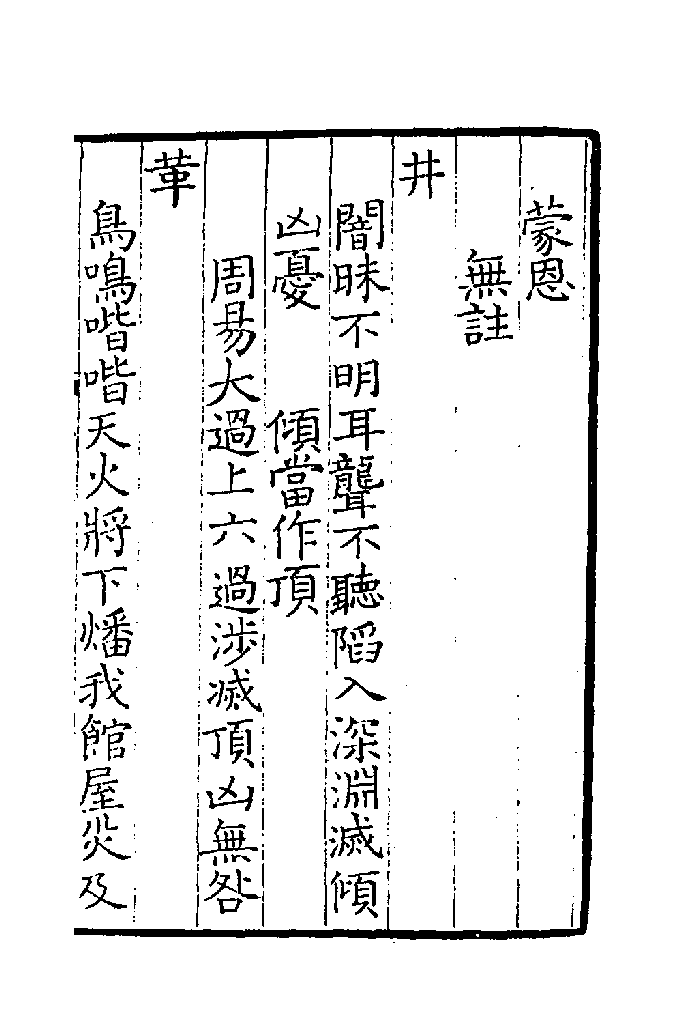 蒙恩
無註
井
闇昧不明耳聾不聽陷入深淵滅傾
凶憂　傾當作頂
周易大過上六過涉滅頂凶無咎
革
鳥鳴喈喈天火將下燔我館屋災及